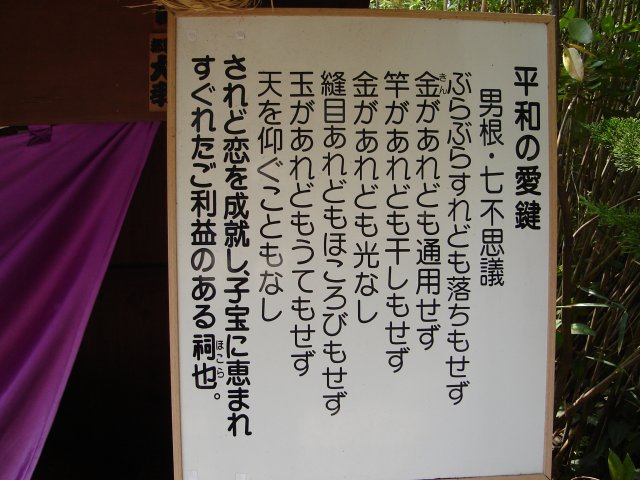 平和の愛鍵
男根・七不思議
ぶらぶらすれども落ちもせず
金があれども通用せず
きん
竿があれども干しもせず
金があれども光なし
縫目あれどもほころびもせず
玉があれどもうてもせず
天を仰ぐこともなし
されど恋を成就し、子宝に恵まれ
すぐれたご利益のある祠也。
ほこら